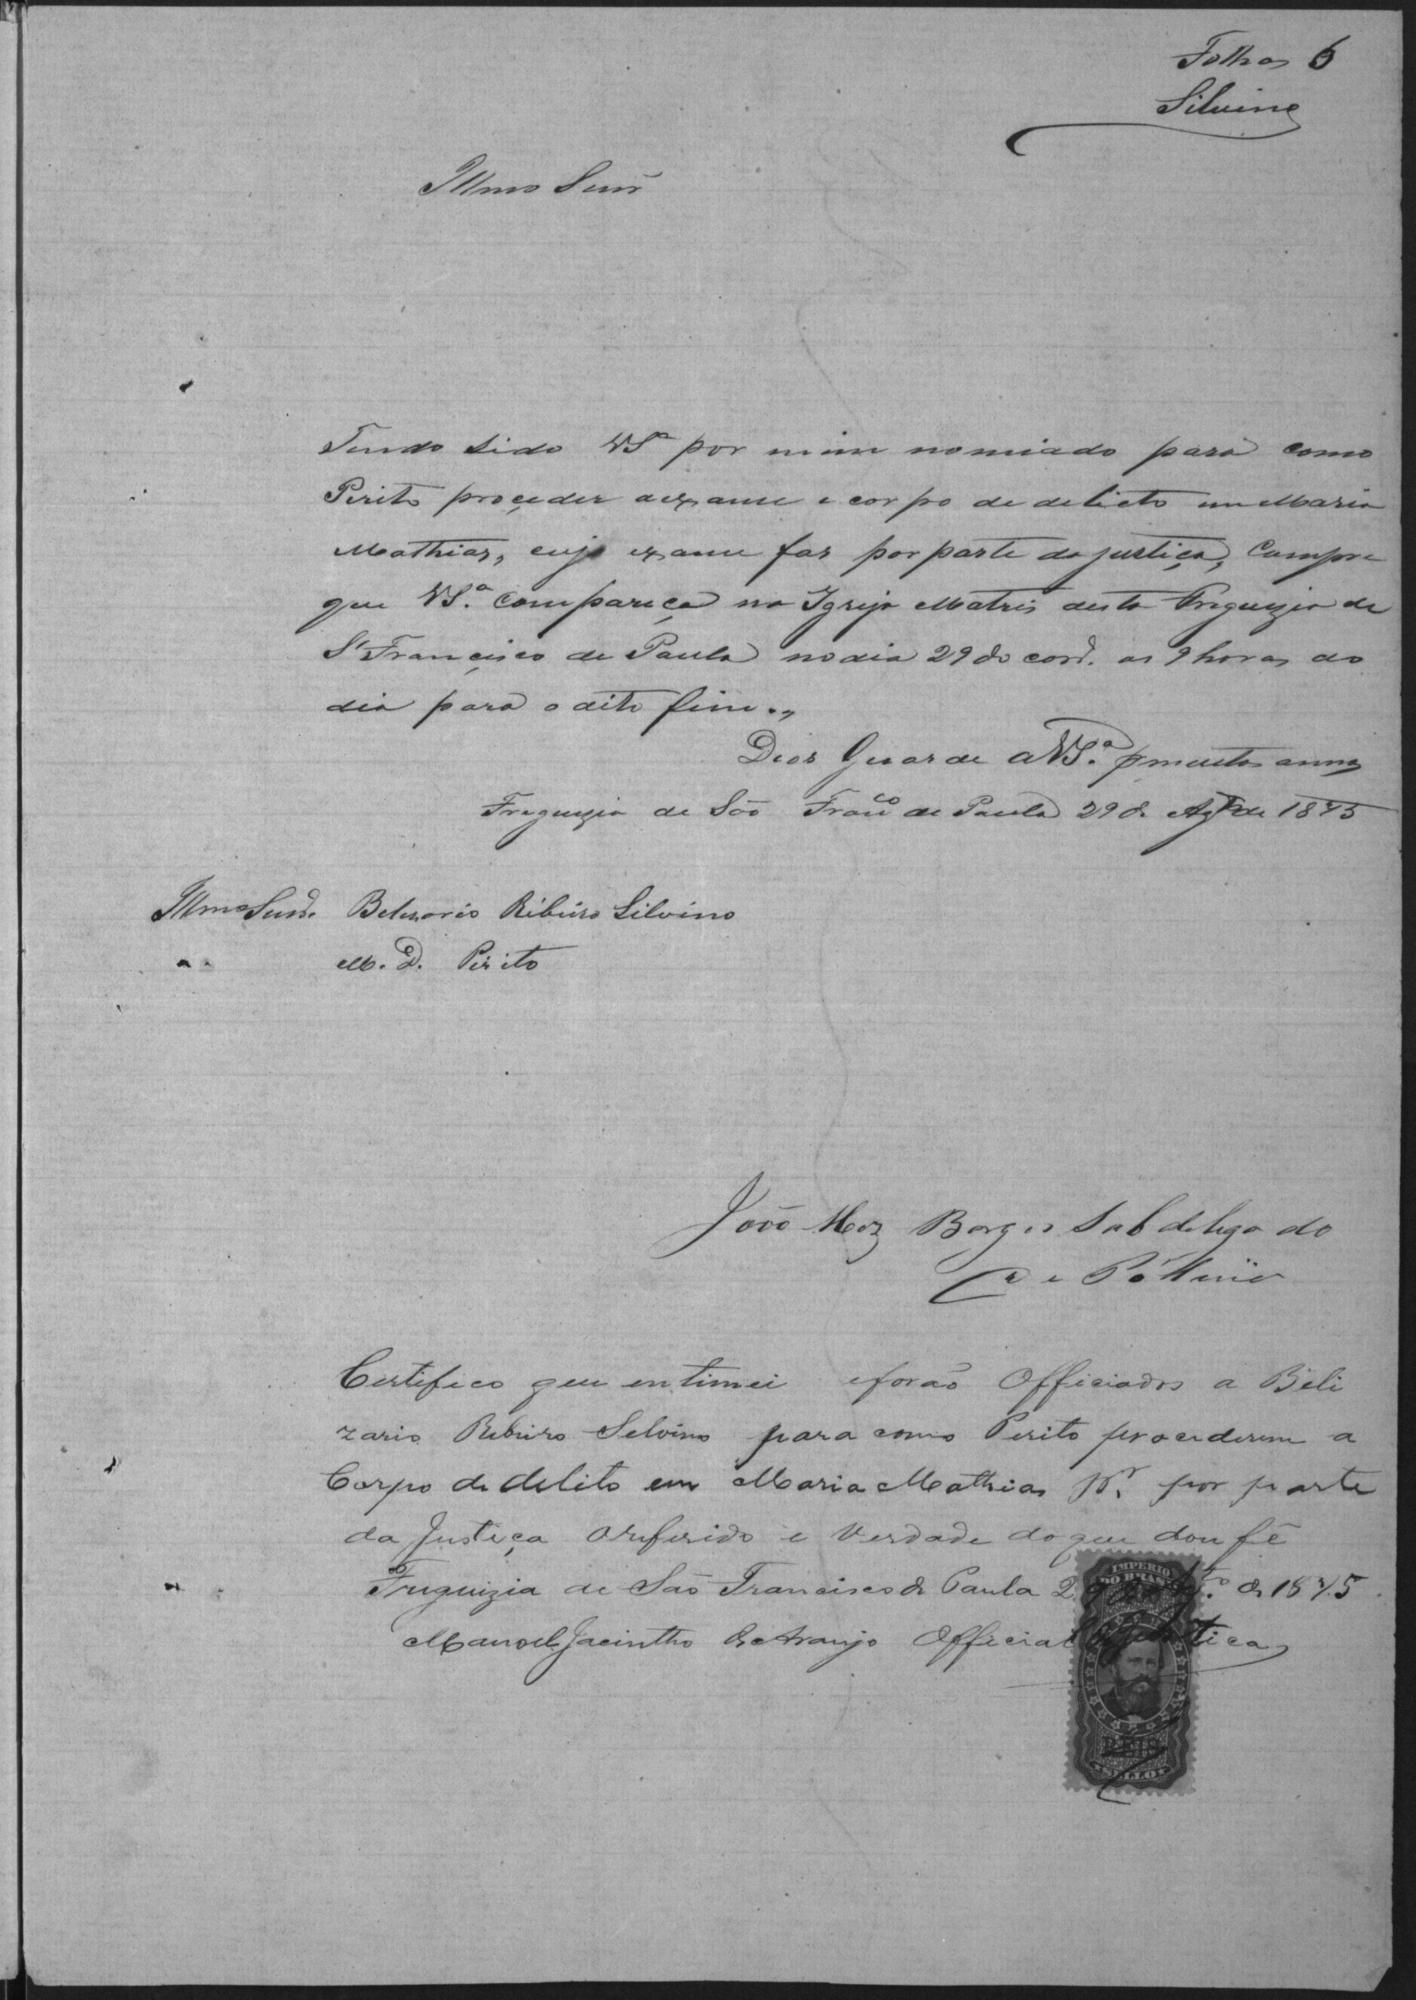 Folhas 6
Silvino
Illmo Senr
Tendo sido VSª por mim nomiado para como
Perito proçeder aexame e corpo de delicto em Maria
Mathias, cujo exame fas por parte da justiça, Cumpre
que VS.ª compareça na Igreja Matris desta Freguezia de
S. Françisco de Paula no dia 29 do corr. as 9 horas do
dia para o dito fim.,
Deos Guarde a VS.ª p muitos annos
Freguezia de São Franco de Paula 29 de Agto de 1875
Illmo Senr. Belizario Ribeiro Silvino
M. D. Perito
João Borges Subdelegado
de
Certifico que entimei eforão Officiados a Beli
zario Ribeiro Selvino para como Perito procederem a
Corpo de delito em Maria Mathias por parte
da Justiça Oreferido e Verdade do que dou fé
Freguizia de São Francisco de Paula 29 de 1875
Manoel Jacintho de Araujo Official de Justiça
IMPERIO
DO BRAZIL
REIS
SELLO